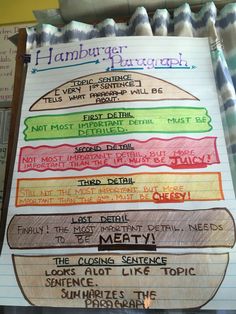 Hamburger
Paragraph
TOPIC SENTENCE
(VERY 1ST SENTENCE)
TELLS WHAT PARAGRAPH WILL BE
ABOUT.
FIRST DETAIL
NOT MOST IMPORTANT DETAIL MUST BE
DETAILED.
SECOND DETAIL
NOT MOST IMPORTANT DETAIL, BUT MORE
IMPORTANT THAN THE 1ST. MUST BE JUICY!
THIRD DETAIL
STILL NOT THE MOST IMPORTANT, BUT MORE
IMPORTANT THAN THE 2ND. MUST BE CHEESY!
LAST DETAIL
FINALLY! THE MOST IMPORTANT DETAIL. NEEDS
TO BE MEATY!
THE CLOSING SENTENCE
LOOKS ALOT LIKE TOPIC
SENTENCE.
SUMMARIZES THE
PARAGRAPH